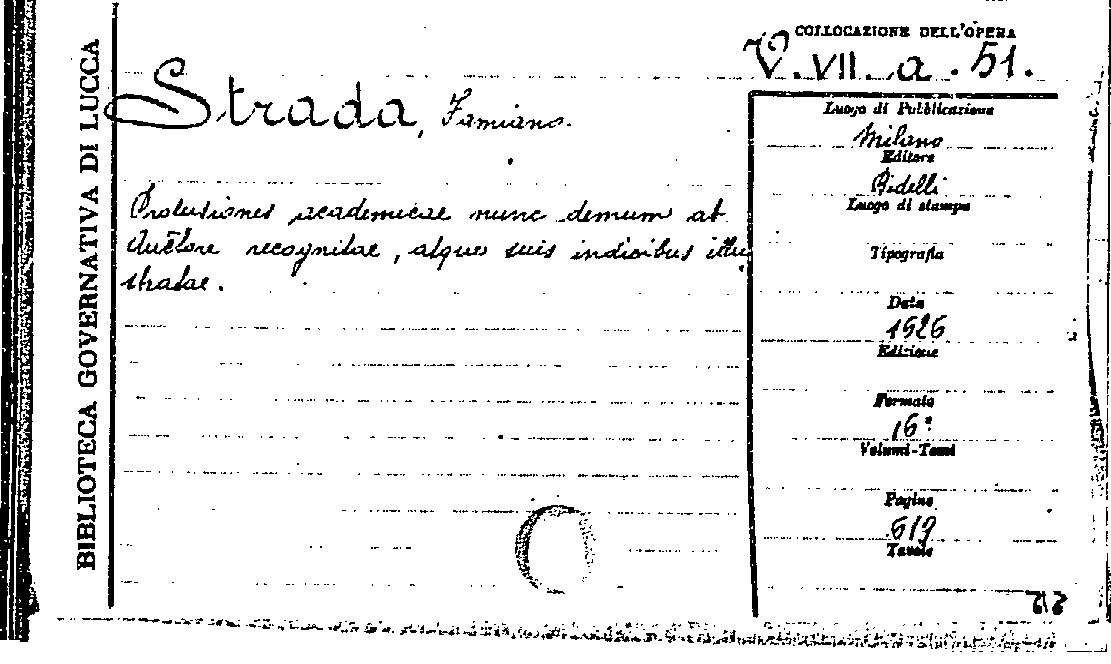 BIBLIOTECA GOVERNATIVA DI LUCCA
COLLOCAZIONE DELL'OPERA
V. VII. a. 51.
Strada, Famiano.
Prolusiones academicae nunc demum ab
Auctore recognitae, atque suis indicibus illu
stratae.
Luogo di Pubblicazione
Milano
Editore
Bidelli
Luogo di stampa
Tipografia
Data
1626
Edizione
Formato
16°
Volumi-Tomi
Pagine
619
Tavole